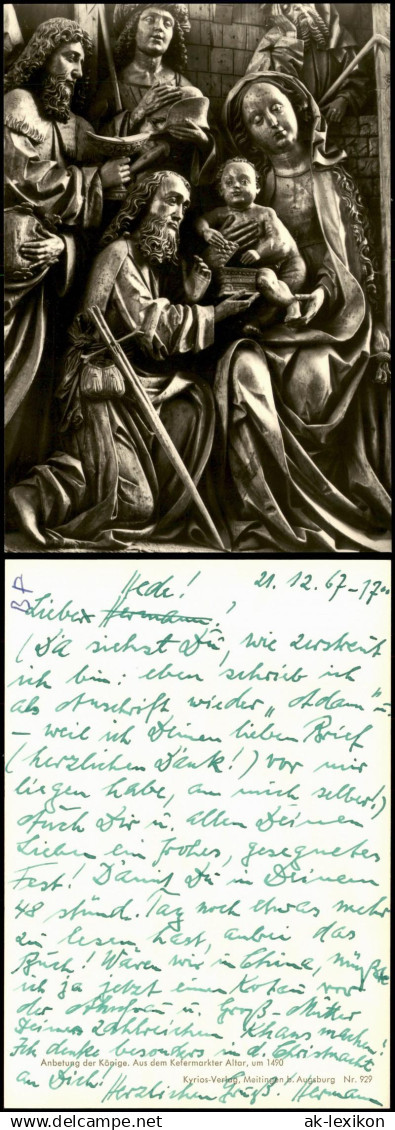 Hede! 21. 12. 67–17°°
Liebe Hermann!
(Da siehst Du, wie zerstreut
ich bin: eben schrieb ich
als Anschrift wieder „Adam" u.
– weil ich Deinen lieben Brief
(herzlichen Dank!) vor mir
liegen habe, an mich selber!)
Auch Dir u. allen Deinen
Lieben ein frohes, gesegnetes
Fest! Damit Du in Deinem
48 stünd. Tag noch etwas mehr
zu lesen hast, anbei das
Buch! Wären wir in China, müßte
ich ja jetzt einen Kotau vor
der Ahnfrau u. Groß-Mutter
Deines zahlreichen Khans machen!
Ich denke besonders in d. Christnacht
Anbetung der Könige. Aus dem Kefermarkter Altar, um 1490
an Dich! Herzlichen Gruß. Hermann
Kyrios-Verlag, Meitingen b. Augsburg Nr. 929
ak-lexikon
© the-millennium-shop www.delcampe.net